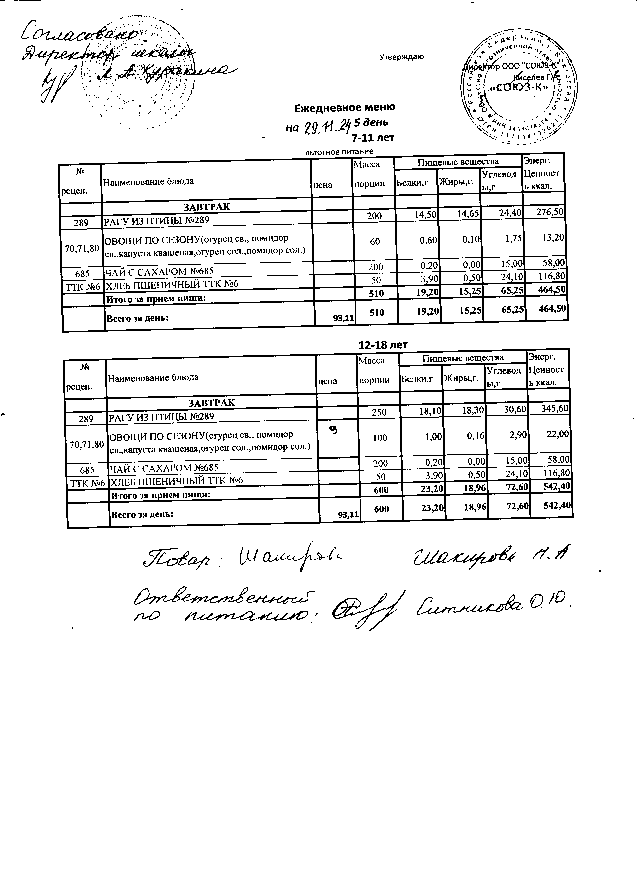 Согласовано:
Директор школы
А. А. Куракина
Утверждаю
Директор ООО "СОЮЗ-К"
Киселев Г.
«СОЮЗ-К»
Ежедневное меню
на 29.11.24 5 день
7-11 лет
льготное питание
№ рецеп. Наименование блюда цена Масса порции Пищевые вещества Энерг. Ценность ккал.
Белки,г Жиры,г. Углеводы,г
ЗАВТРАК
289 РАГУ ИЗ ПТИЦЫ №289 200 14,50 14,65 24,40 276,50
70,71,80 ОВОЩИ ПО СЕЗОНУ(огурец св., помидор св.,капуста квашеная,огурец сол.,помидор сол.) 60 0,60 0,10 1,75 13,20
685 ЧАЙ С САХАРОМ №685 200 0,20 0,00 15,00 58,00
ТТК №6 ХЛЕБ ПШЕНИЧНЫЙ ТТК №6 50 3,90 0,50 24,10 116,80
Итого за прием пищи: 510 19,20 15,25 65,25 464,50
Всего за день: 93,11 510 19,20 15,25 65,25 464,50
12-18 лет
№ рецеп. Наименование блюда цена Масса порции Пищевые вещества Энерг. Ценность ккал.
Белки,г Жиры,г. Углеводы,г
ЗАВТРАК
289 РАГУ ИЗ ПТИЦЫ №289 250 18,10 18,30 30,60 345,60
70,71,80 ОВОЩИ ПО СЕЗОНУ(огурец св., помидор св.,капуста квашеная,огурец сол.,помидор сол.) 100 1,00 0,16 2,90 22,00
685 ЧАЙ С САХАРОМ №685 200 0,20 0,00 15,00 58,00
ТТК №6 ХЛЕБ ПШЕНИЧНЫЙ ТТК №6 50 3,90 0,50 24,10 116,80
Итого за прием пищи: 600 23,20 18,96 72,60 542,40
Всего за день: 93,11 600 23,20 18,96 72,60 542,40
Повар: Шакирова Шакирова Н. А
Ответственный
по питанию: Ситникова О.Ю.